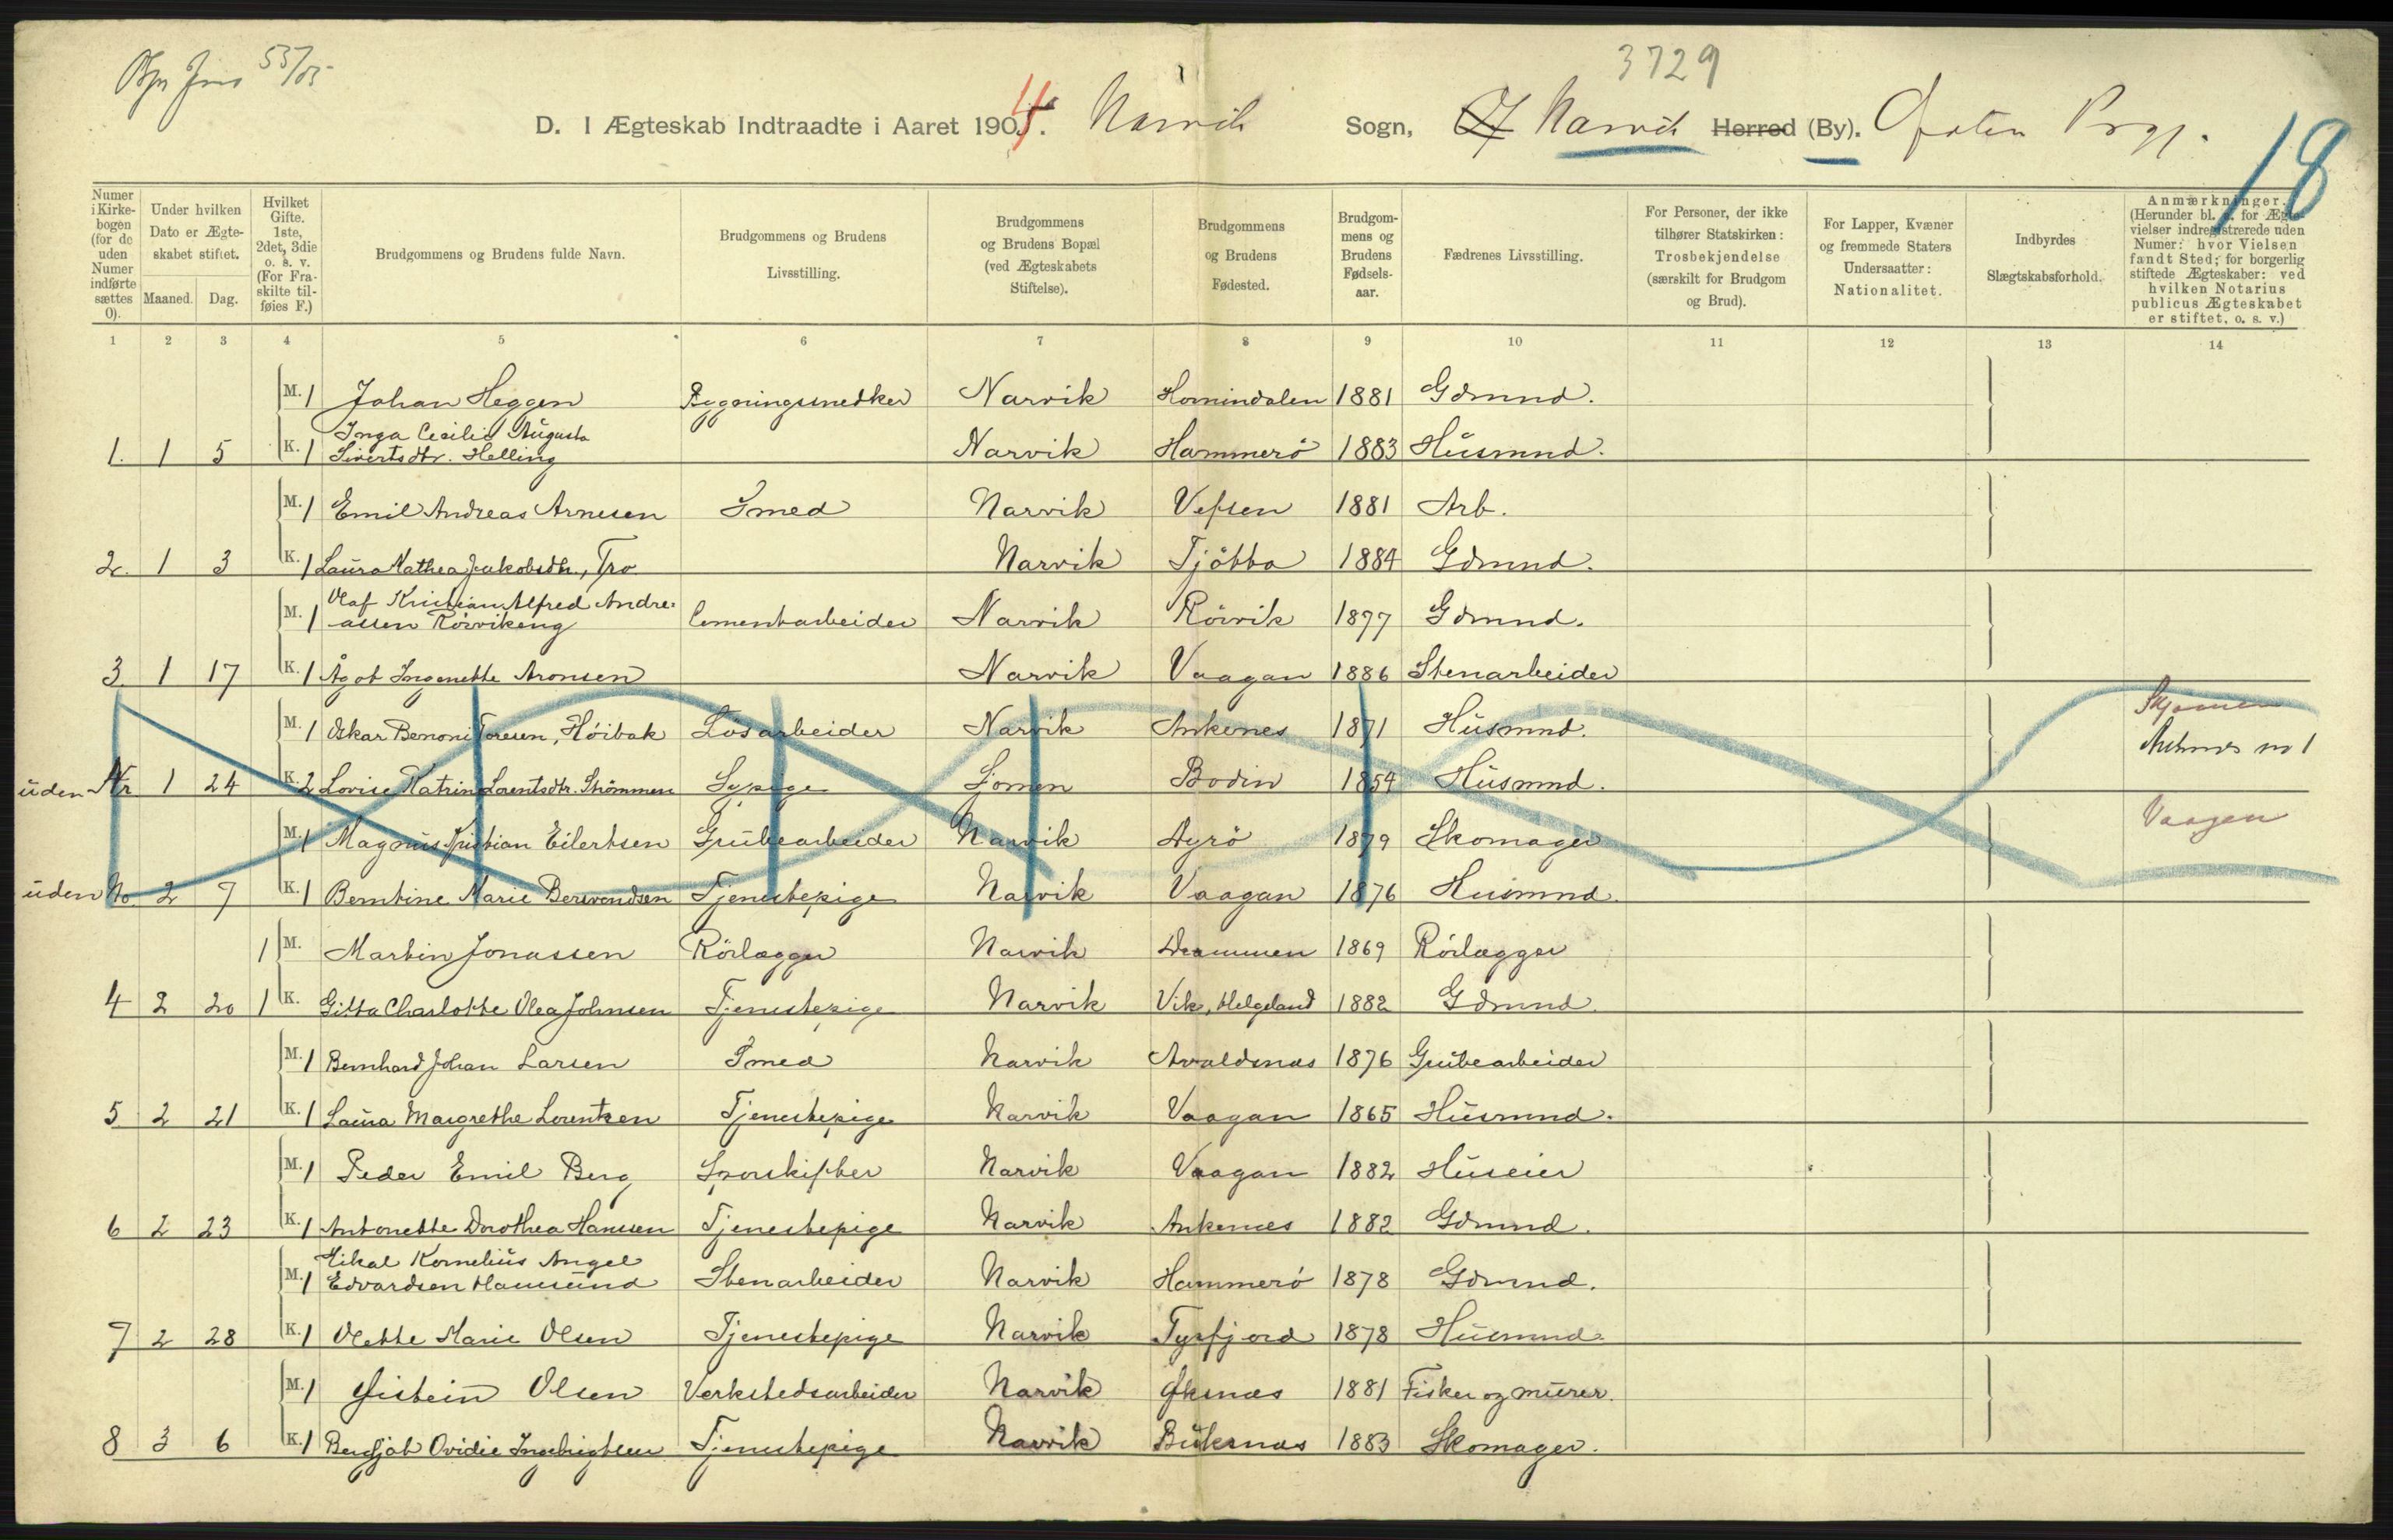 55/05
3729
D. I Ægteskab Indtraadte i Aaret 1904. Narvik Sogn, Narvik Herred (By). Ofoten Prgj.
18
Numer i Kirkebogen (for de uden Numer indførte sættes 0).
Under hvilken Dato er Ægteskabet stiftet.
Maaned. Dag.
Hvilket Gifte. 1ste, 2det, 3die o. s. v. (For Fraskilte tilføies F.)
Brudgommens og Brudens fulde Navn.
Brudgommens og Brudens Livsstilling.
Brudgommens og Brudens Bopæl (ved Ægteskabets Stiftelse).
Brudgommens og Brudens Fødested.
Brudgommens og Brudens Fødselsaar.
Fædrenes Livsstilling.
For Personer, der ikke tilhører Statskirken: Trosbekjendelse (særskilt for Brudgom og Brud).
For Lapper, Kvæner og fremmede Staters Undersaatter: Nationalitet.
Indbyrdes Slægtskabsforhold.
Anmærkninger. (Herunder bl. a. for Ægtevielser indregistrerede uden Numer: hvor Vielsen fandt Sted; for borgerlig stiftede Ægteskaber: ved hvilken Notarius publicus Ægteskabet er stiftet, o. s. v.)
1 2 3 4 5 6 7 8 9 10 11 12 13 14
M. 1 Johan Heggen Bygningssnedker Narvik Hornindalen 1881 Gdmnd.
Inga Cecilie Augusta
1. 1 5 K. 1 Sivertsdtr. Helling Narvik Hammerö 1883 Husmnd.
M. 1 Emil Andreas Arnesen Smed Narvik Vefsen 1881 Arb.
2. 1 3 K. 1 Laura Mathea Jakobsdtr, Tro Narvik Tjötta 1884 Gdmnd.
Olaf Kristian Alfred Andre-
M. 1 assen Rörvikeng Cementarbeider Narvik Rörvik 1877 Gdmnd.
3. 1 17 K. 1 Ågot Ingenette Aronsen Narvik Vaagan 1886 Stenarbeider
M. 1 Oskar Benoni Toresen, Höibak Lösarbeider Narvik Ankenes 1871 Husmnd. Skjomen
Ankenes no 1
uden Nr. 1 24 K. 2 Lovise Katrine Lorentsdtr. Strömmen Sypige Sjomen Bodin 1854 Husmnd.
M. 1 Magnus Kristian Eilertsen Grubearbeider Narvik Agrö 1879 Skomager Vaagen
uden No. 2 7 K. 1 Berntine Marie Bersvendsen Tjenestepige Narvik Vaagan 1876 Husmnd.
1 M. Martin Jonassen Rörlægger Narvik Drammen 1869 Rörlægger
4 2 20 1 K. Gitta Charlotte Olea Johnsen Tjenestepige Narvik Vik, Helgeland 1882 Gdmnd.
M. 1 Bernhard Johan Larsen Smed Narvik Avaldsnas 1876 Grubearbeider
5 2 21 K. 1 Laura Margrethe Lorentzen Tjenestepige Narvik Vaagan 1865 Husmnd.
M. 1 Peder Emil Berg Sporskifter Narvik Vaagan 1882 Huseier
6 2 23 K. 1 Antonette Dorothea Hanssen Tjenestepige Narvik Ankenes 1882 Gdmnd.
Mikal Kornelius Angel
M. 1 Edvardsen Hamsund Stenarbeider Narvik Hammerö 1878 Gdmnd.
7 2 28 K. 1 Olette Marie Olsen Tjenestepige Narvik Tysfjord 1878 Husmnd.
M. 1 Øistein Olsen Verkstedsarbeider Narvik Øksnas 1881 Fisker og murer.
8 3 6 K. 1 Bergljot Ovidie Ingebrigtsen Tjenestepige Narvik Buksnas 1883 Skomager.